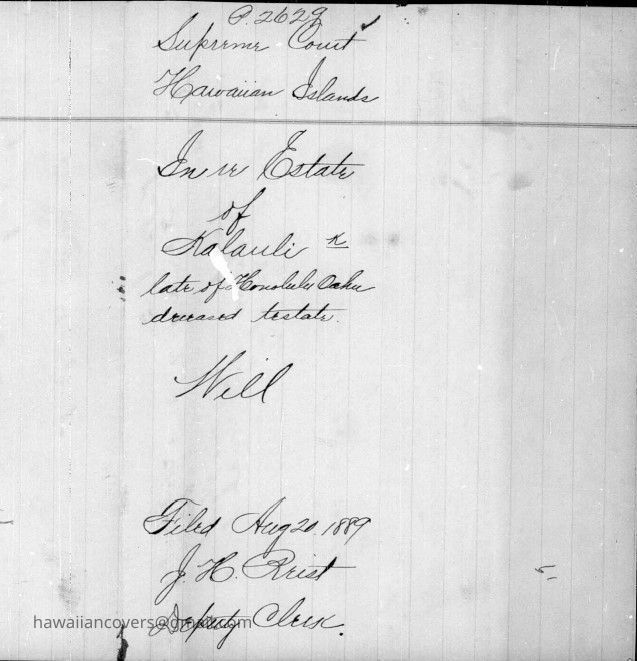 P. 2629
Supreme Court
Hawaiian Islands
In re Estate
of
Kalauli k
late of Honolulu Oahu
deceased testate.
Will
Filed Aug 20. 1889
J. H. Reist
Deputy Clerk.
hawaiiancovers@gmail.com